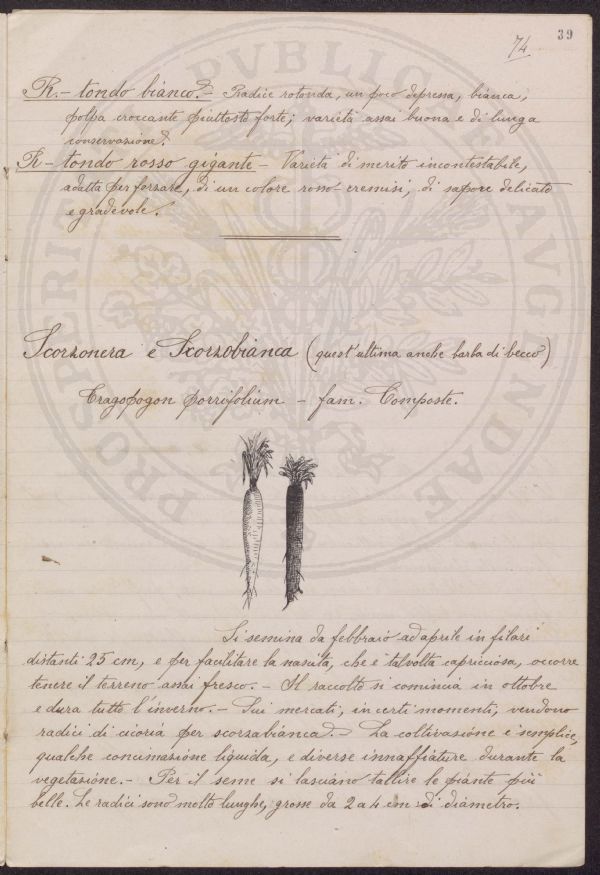 39
74
R.- tondo bianco. - Radice rotonda, un poco depressa, bianca,
polpa croccante piuttosto forte; varietà assai buona e di lunga
conservazione.
R - tondo rosso gigante - Varietà di merito incontestabile,
adatta per forzare, di un colore rosso cremisi, di sapore delicato
e gradevole.
Scorzonera e Scorzobianca (quest'ultima anche barba di becco)
Tragopogon porrifolium - fam. Composte.
Si semina da febbraio ad aprile in filari
distanti 25 cm, e per facilitare la nascita, che è talvolta capricciosa, occorre
tenere il terreno assai fresco. - Il raccolto si comincia in ottobre
e dura tutto l'inverno. - Sui mercati, in certi momenti, vendono
radici di cicoria per scorzabianca. - La coltivazione è semplice,
qualche concimazione liquida, e diverse innaffiature durante la
vegetazione. - Per il seme si lasciano tallire le piante più
belle. Le radici sono molto lunghe, grosse da 2 a 4 cm di diametro.
PROSPERITATI PUBLICAE AUGENDAE